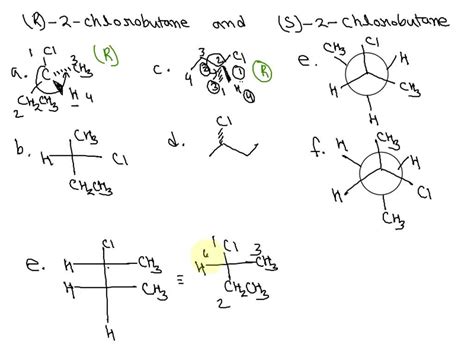 (R)-2-chlorobutane and (S)-2-chlorobutane
a. 1 Cl C 3 CH3 (R)
CH2CH3 H 4
2
c. 3 2 Cl 1 (R)
4 3 1 H 4
e. Cl H
H CH3
H
b. CH3
H Cl
CH2CH3
d. Cl
f. H CH3 H
H Cl
CH3
e. Cl
H CH3
H CH3
H
≡
1 Cl
4 H 3 CH3
CH2CH3
2